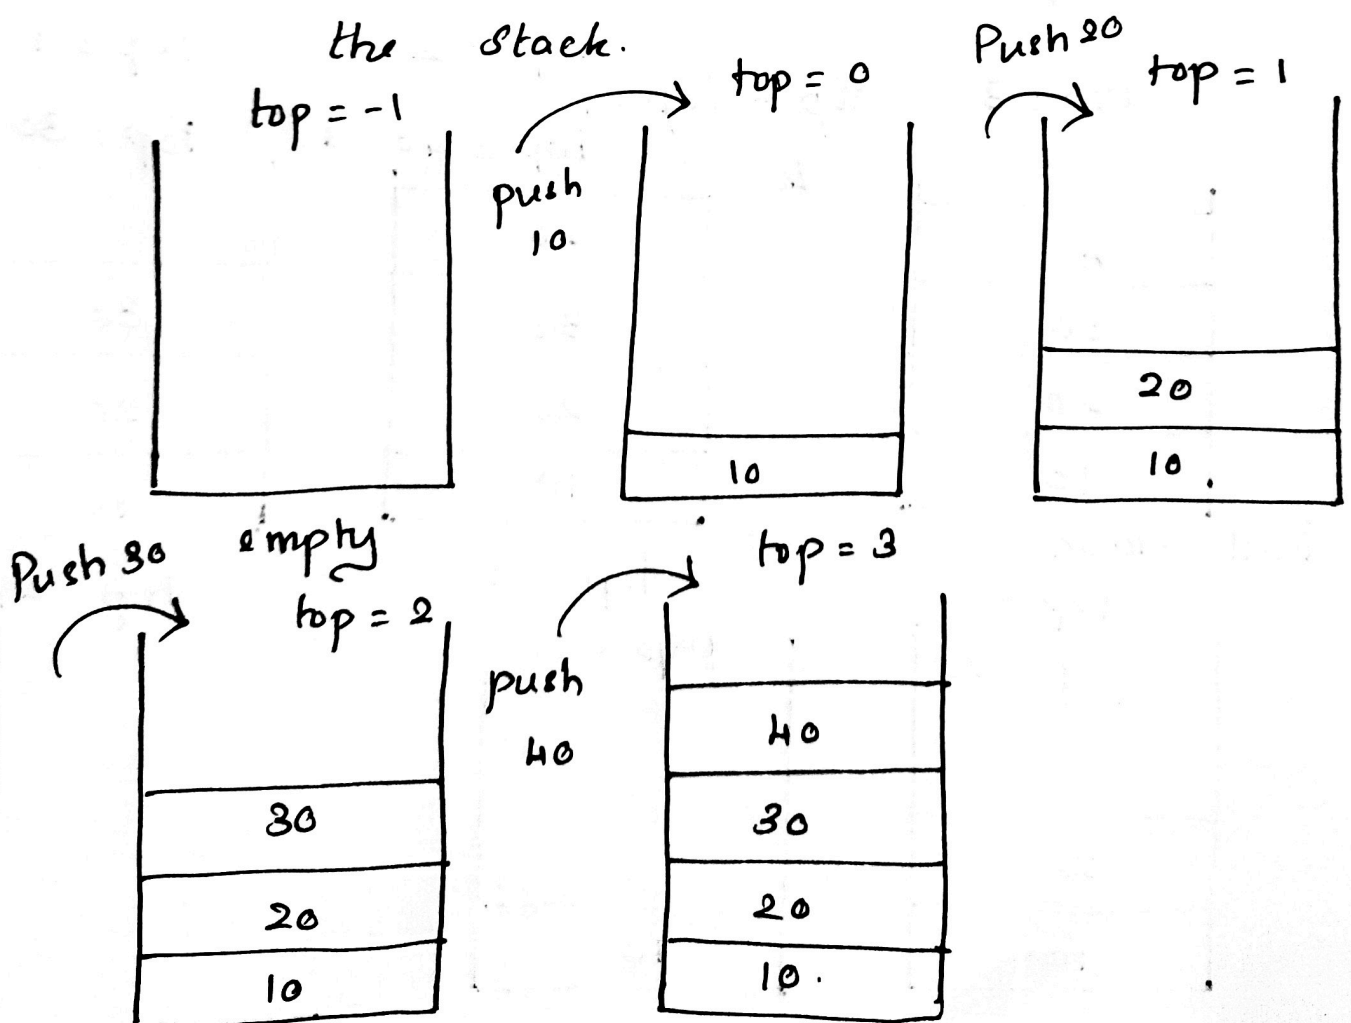 the stack.
top = -1
push
10
top = 0
10
Push 20
top = 1
20
10
empty
Push 30
top = 2
30
20
10
push
40
top = 3
40
30
20
10.